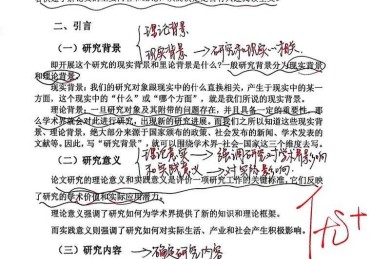 二、引言
理论背景
(一)研究背景
现实背景
即开展这个研究的现实背景和里论背景是什么?一般研究背景分为现实背景
和理论背景。
现实背景:我们的研究对象跟现实中的什么直接相关,产生于现实中的某一
方面,这个现实中的“什么”或“哪个方面”,就是我们所说的现实背景。
理论背景:一旦研究对象及其附带的问题存在,并且具备一定的重要性,那
么学术界就会对此进行研究,出现新的研究进展。而我们之所以知道这些现实背
景、理论背景,绝大部分来源于国家颁布的政策、社会发布的新闻、学术发表的
文献等。因此,写“研究背景”,就可以围绕学术界-社会-国家这三个维度去写。
(二)研究意义
理论意义
实践意义
论文研究的理论意义和实践意义是评价一项研究工作的关键标准,它们反映
了研究的学术价值和实际应用潜力。
理论意义强调了研究如何为学术界提供了新的知识和理论框架。
而实践意义则强调了研究如何对实际生活、产业和社会产生积极影响。
(三)研究内容
确定研究内容